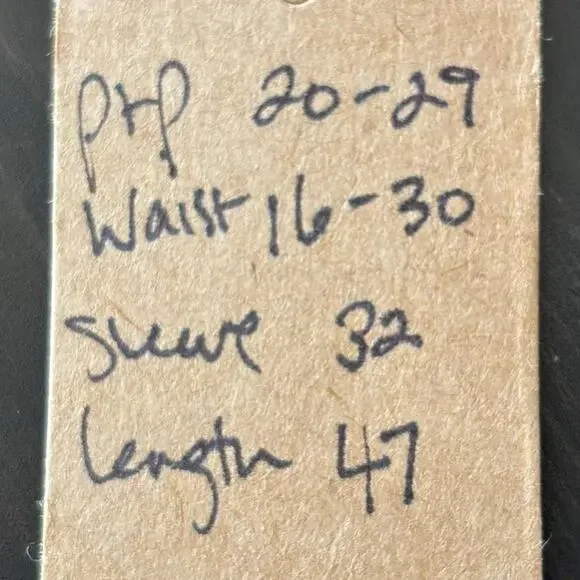 ptp 20-29
Waist 16-30
Sleeve 32
Length 47